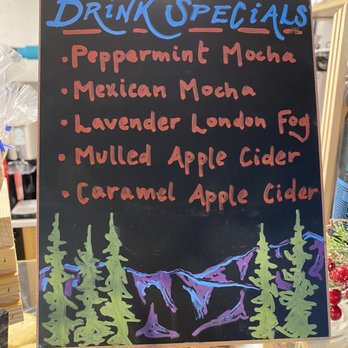 DRINK SPECIALS
• Peppermint Mocha
• Mexican Mocha
• Lavender London Fog
• Mulled Apple Cider
• Caramel Apple Cider